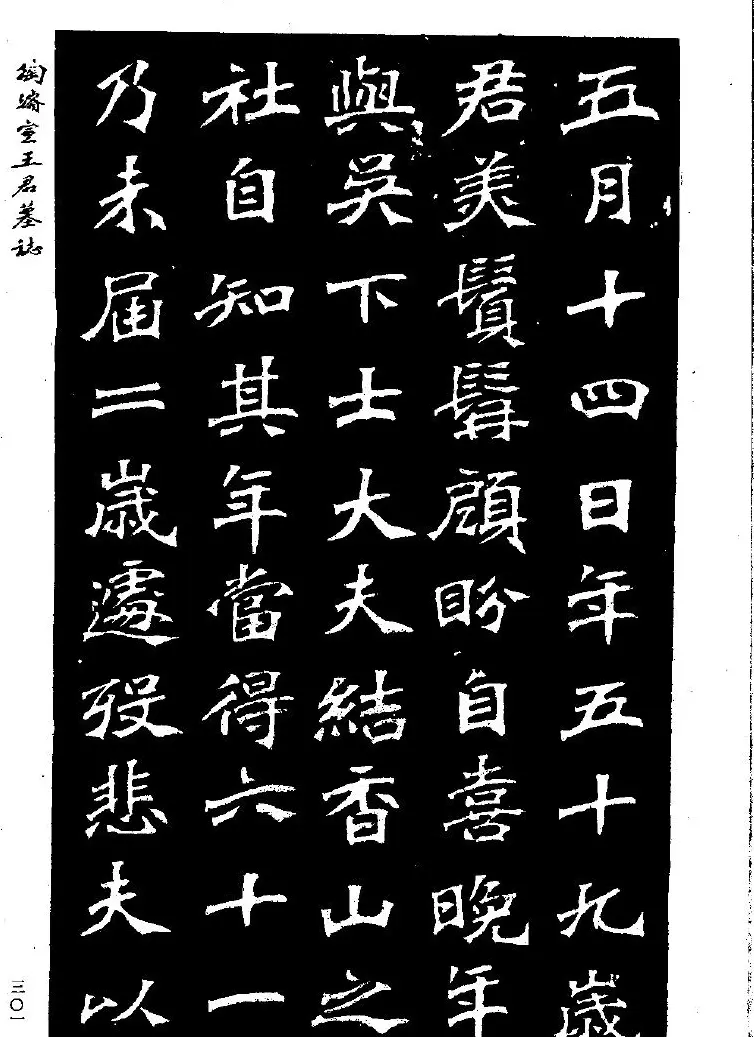 五月十四日年五十九歲
君美鬢髯顧盼自喜晚年
與吳下士大夫結香山之
社自知其年當得六十一
乃未届二歲遽歿悲夫以
陶濬宣王君墓誌
三〇一